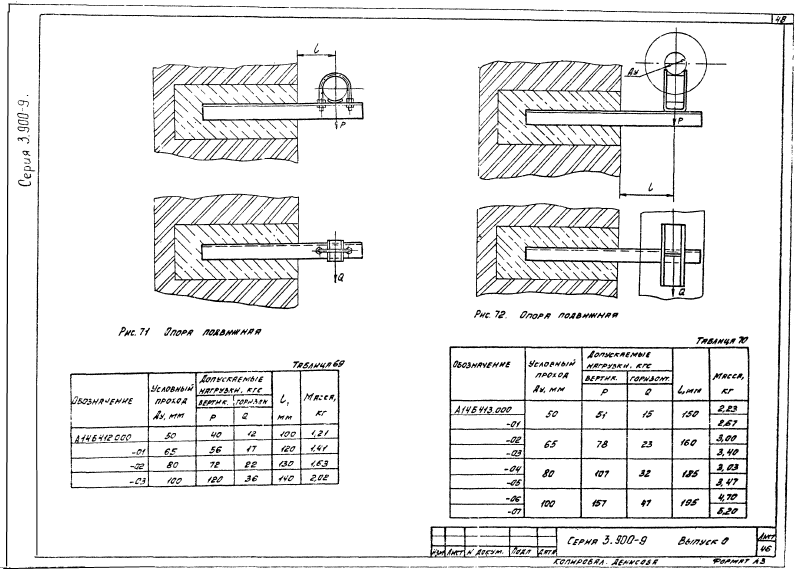 48
Серия 3.900-9.
L
P
Q
Ду
P
L
Q
Рис. 71 Опора подвижная
Рис. 72. Опора подвижная
Таблица 69
Обозначение | Условный проход Ду, мм | Допускаемые нагрузки, кгс | L, мм | Масса, кг
вертик. P | горизон Q
А14Б412.000 | 50 | 40 | 12 | 100 | 1,21
-01 | 65 | 56 | 17 | 120 | 1,41
-02 | 80 | 72 | 22 | 130 | 1,63
-03 | 100 | 120 | 36 | 140 | 2,02
Таблица 70
Обозначение | Условный проход Ду, мм | Допускаемые нагрузки, кгс | L, мм | Масса, кг
вертик. P | горизонт. Q
А14Б413.000 | 50 | 51 | 15 | 150 | 2,23
-01 | 2,67
-02 | 65 | 78 | 23 | 160 | 3,00
-03 | 3,40
-04 | 80 | 107 | 32 | 185 | 3,03
-05 | 3,47
-06 | 100 | 157 | 47 | 195 | 4,70
-07 | 5,20
Изм Лист N докум. Подп Дата
Серия 3.900-9 Выпуск 0
Лист
46
Копировал. Денисова Формат А3